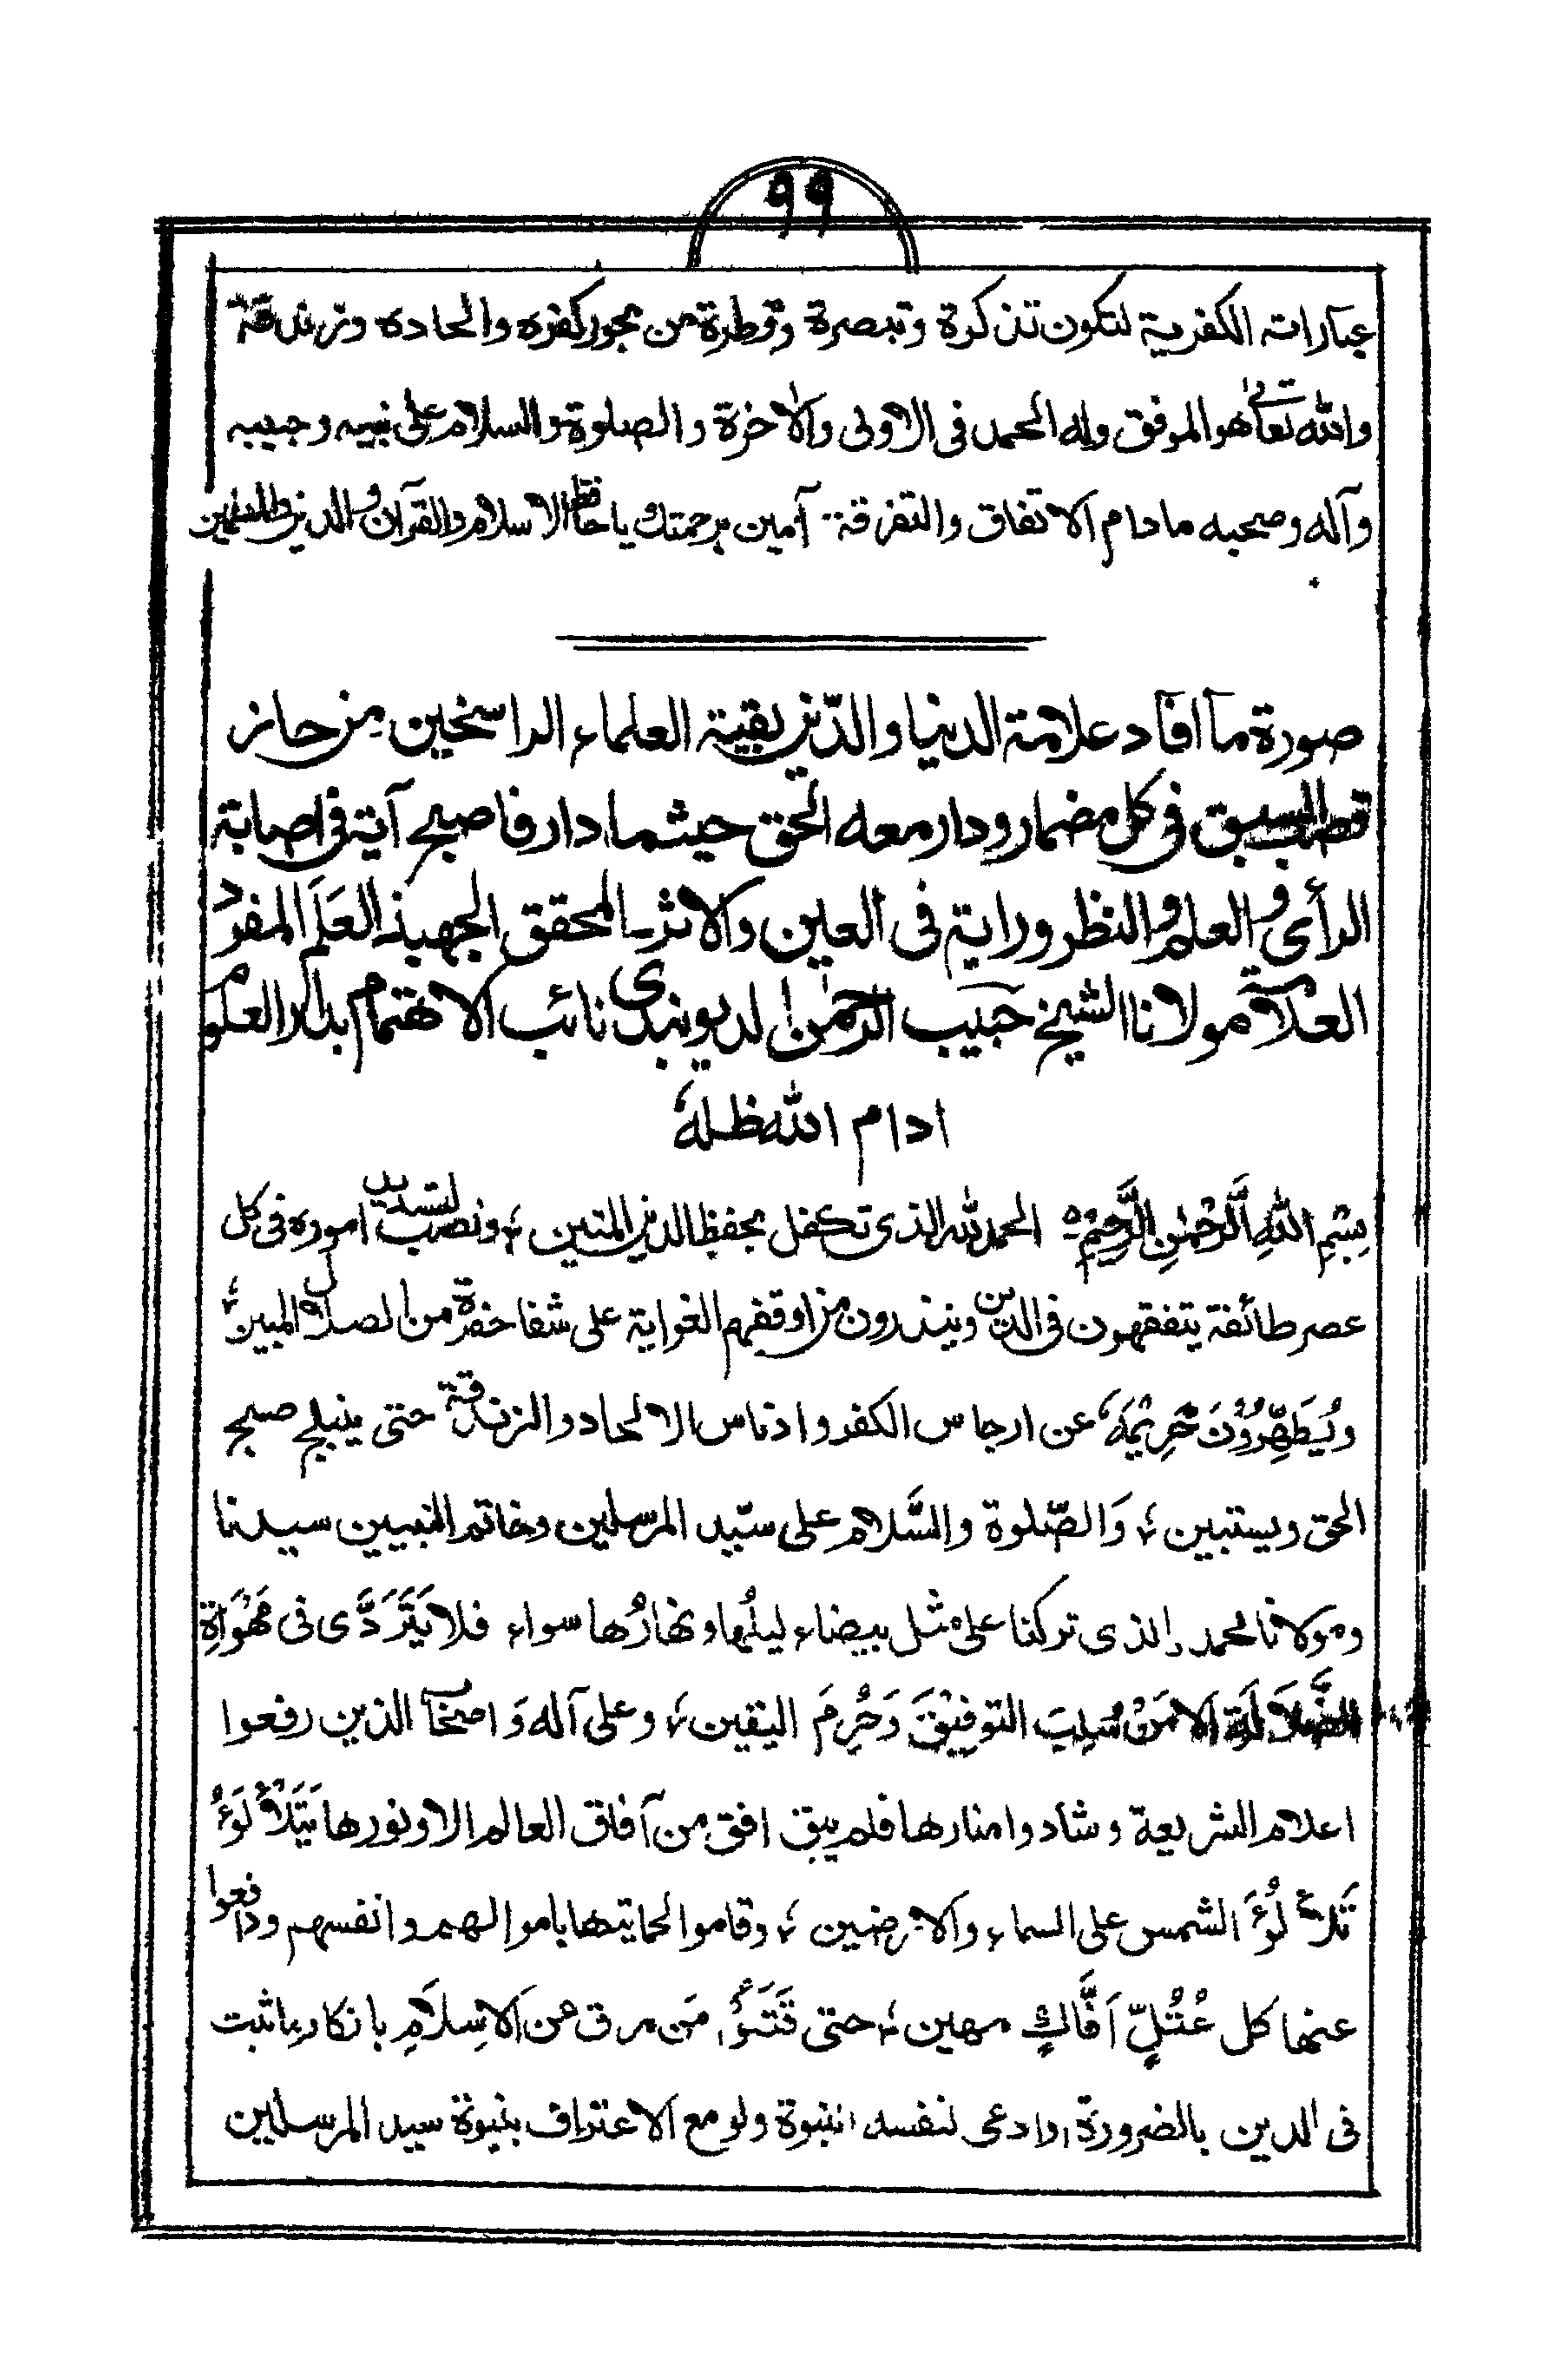 ٩٩
عباراته الكفرية لتكون تذكرة وتبصرة وقطرة من بحور كفره والحاده وزندقته
والله تعالى هو الموفق وله الحمد فى الاولى والآخرة والصلوة والسلام على نبيه وحبيبه
وآله وصحبه مادام الاتفاق والتفرقة۔ آمين برحمتك يا حافظ الاسلام والقرآن والدين والمسلمين
صورة ما افاد علامة الدنيا والدّين بقية العلماء الراسخين من حاز
قصب السبق فى كل مضمار ودار معه الحق حيثما دار فاصبح آية فى اصابة
الرأى والعلم والنظر وراية فى العين والاثر المحقق الجهبذ العَلَم المفرد
العلامة مولانا الشيخ حبيب الرحمٰن الديوبندى نائب الاهتمام بدار العلوم
ادام الله ظلهٗ
بِسْمِ اللهِ الرَّحْمٰنِ الرَّحِيْمِ ه الحمد لله الذى تكفل بحفظ الدين المتين ؛ ونصب لتسديد اموره فى كل
عصر طائفة يتفقهون فى الدين وينذرون من اوقفهم الغواية على شفا حفرة من الضلال المبين ؛
ويُطَهِّرُوْنَ حَرِيْمَهٗ عن ارجاس الكفر وادناس الالحاد والزندقة حتى ينبلج صبح
الحق ويستبين ؛ وَالصّلوة والسَّلام على سيّد المرسلين وخاتم النبيين سيدنا
ومولانا محمد الذى تركنا على مثل بيضاء ليلُها ونهارُها سواء فلا يَتَرَدَّى فى مَهْوَاةِ
الضَّلاَلَةِ الا مَنْ سُلِبَ التوفِيْقَ وَحُرِمَ اليقين ؛ وعلى آله وَاصحابه الذين رفعوا
اعلام الشريعة وشادوا منارها فلم يبق افق من آفاق العالم الا ونورها يَتَلَأْلَؤُ
تَلَأْلُؤَ الشمس على السماء والارضين ؛ وقاموا لحمايتها باموالهم وانفسهم ودافعوا
عنها كل عُتُلٍّ اَفَّاكٍ مهين ؛ حتى قَتَلُوْا مَن مرق من الاِسلَامِ بانكار ما ثبت
فى الدين بالضرورة او ادعى لنفسه النبوة ولو مع الاعتراف بنبوة سيد المرسلين